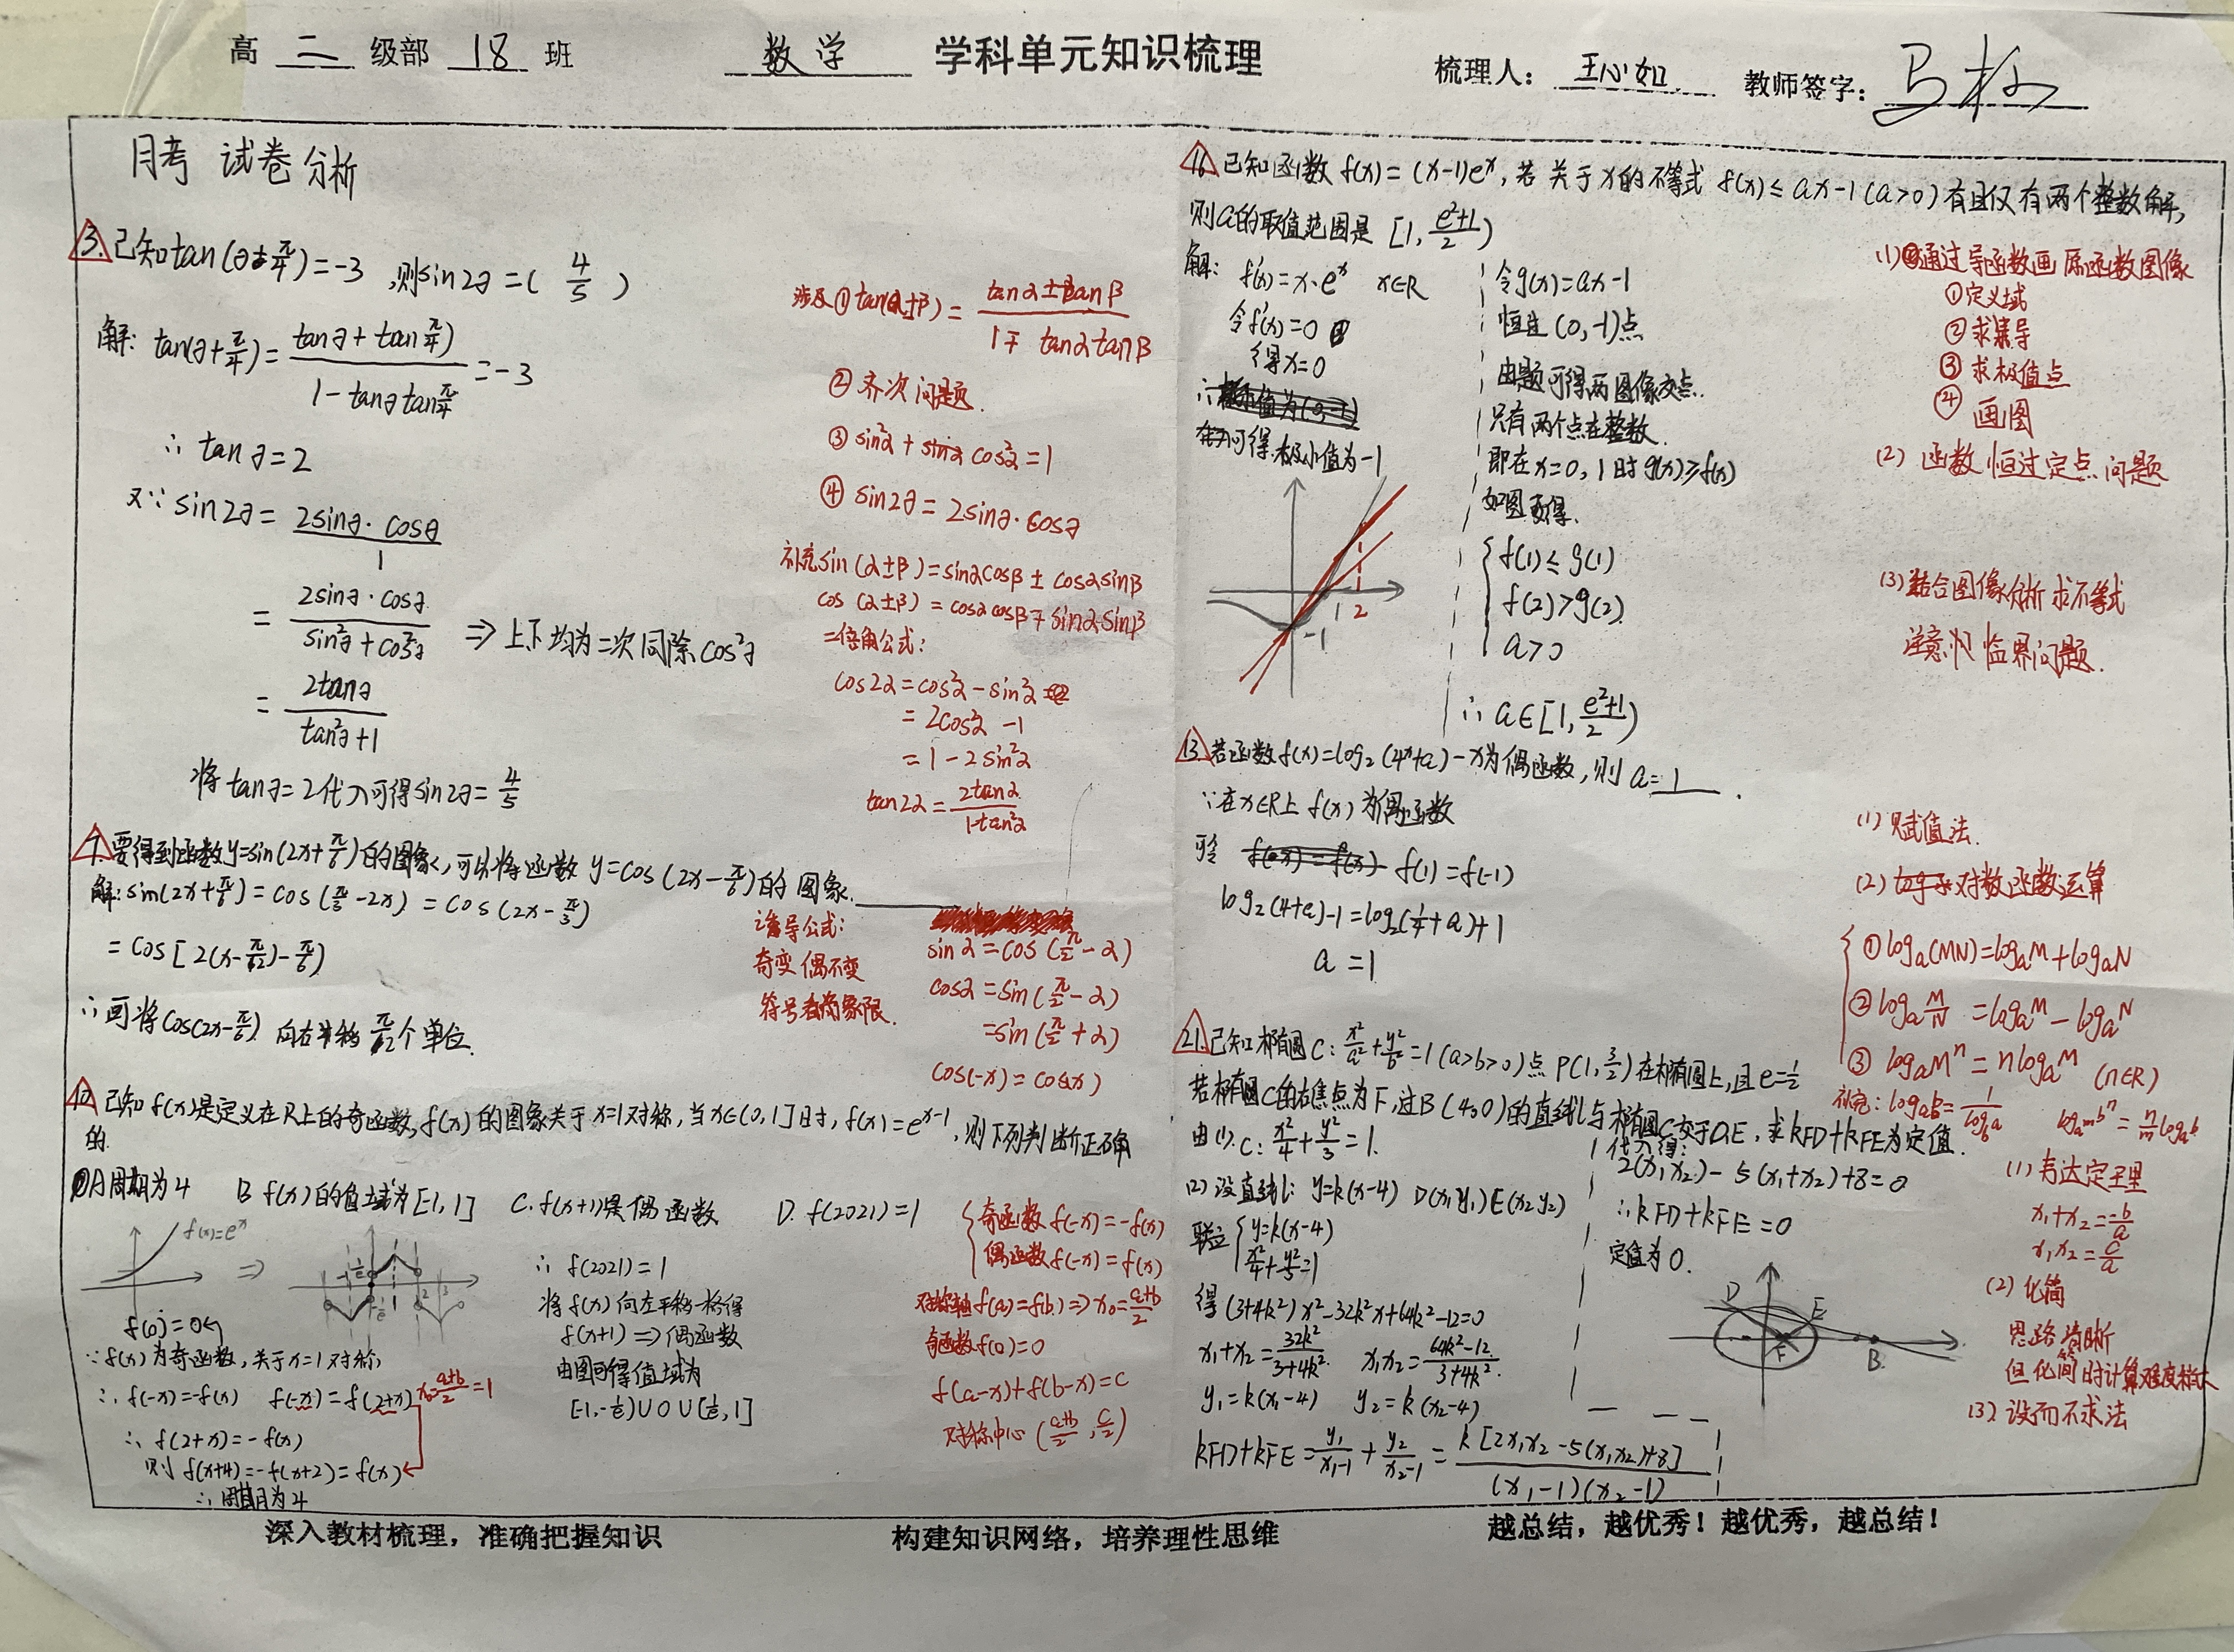 高 二 级部 18 班 数学 学科单元知识梳理 梳理人： 王心如 教师签字：
月考 试卷分析
3. 已知tan(∂+π/4)=-3 ,则sin2∂=( 4/5 )
解: tan(∂+π/4)= (tan∂+tanπ/4)/(1-tan∂tanπ/4) =-3
∴ tan∂=2
又∵ sin2∂= 2sin∂·cos∂/1
= 2sin∂·cos∂/(sin²∂+cos²∂) ⇒上下均为二次同除cos²∂
= 2tan∂/(tan²∂+1)
将tan∂=2代入可得sin2∂=4/5
涉及①tan(α±β)= (tanα±tanβ)/(1∓tanαtanβ)
②齐次问题.
③ sin²α+cos²α=1
④ sin2∂=2sin∂·cos∂
补充sin(α±β)=sinαcosβ±cosαsinβ
cos(α±β)=cosαcosβ∓sinαsinβ
二倍角公式:
cos2α=cos²α-sin²α
=2cos²α-1
=1-2sin²α
tan2α= 2tanα/(1-tan²α)
7. 要得到函数y=sin(2x+π/6)的图象,可将函数 y=cos(2x-π/6)的图象
解:sin(2x+π/6)=cos(π/3-2x)=cos(2x-π/3)
=cos[2(x-π/12)-π/6]
∴可将cos(2x-π/6) 向右平移π/12个单位.
诱导公式:
奇变偶不变
符号看象限.
sinα=cos(π/2-α)
cosα=sin(π/2-α)
=sin(π/2+α)
cos(-x)=cos(x)
10. 已知f(x)是定义在R上的奇函数,f(x)的图象关于x=1对称,当x∈(0,1]时,f(x)=e^(x-1),则下列判断正确
的.
A周期为4 B f(x)的值域为[-1,1] C.f(x+1)是偶函数 D. f(2021)=1
f(x)=e^x ⇒
f(0)=0
∵f(x)为奇函数,关于x=1对称
∴f(-x)=-f(x) f(-x)=f(2+x) x₀=(a+b)/2=1
∴ f(2+x)=-f(x)
则 f(x+4)=-f(x+2)=f(x)
∴周期为4
∴ f(2021)=1
将f(x)向左平移一格得
f(x+1)⇒偶函数
由图可得值域为
[-1,-1/e)∪0∪(1/e,1]
奇函数f(-x)=-f(x)
偶函数f(-x)=f(x)
对称轴f(a)=f(b)⇒x₀=(a+b)/2
奇函数f(0)=0
f(a-x)+f(b-x)=c
对称中心((a+b)/2,c/2)
16. 已知函数f(x)=(x-1)e^x,若关于x的不等式 f(x)≤ax-1(a>0)有且仅有两个整数解,
则a的取值范围是[1,(e²+1)/2)
解: f'(x)=x·e^x x∈R
令f'(x)=0
得x=0
可得极小值为-1
-1 1 2
令g(x)=ax-1
恒过(0,-1)点
由题可得两图像交点.
只有两个点在整数.
即在x=0,1时g(x)≥f(x)
如图可得.
f(1)≤g(1)
f(2)>g(2)
a>0
∴a∈[1,(e²+1)/2)
(1)通过导函数画原函数图像
①定义域
②求导
③求极值点
④画图
(2) 函数恒过定点问题
(3)结合图像分析求不等式
注意 临界问题.
13. 若函数f(x)=log₂(4^x+a)-x为偶函数,则a=1.
∵在x∈R上 f(x)为偶函数
可令 f(1)=f(-1)
log₂(4+a)-1=log₂(1/4+a)+1
a=1
(1) 赋值法.
(2) 对数函数运算
①logₐ(MN)=logₐM+logₐN
②logₐM/N=logₐM-logₐN
③logₐMⁿ=nlogₐM (n∈R)
补充: logₐb=1/log_b a log_(a^m) bⁿ=n/m logₐb
21. 已知椭圆C: x²/a²+y²/b²=1(a>b>0)点P(1,3/2)在椭圆上,且e=1/2
若椭圆C的右焦点为F,过B(4,0)的直线l与椭圆C交于D,E,求kFD+kFE为定值.
由(1).C: x²/4+y²/3=1.
(2)设直线l: y=k(x-4) D(x₁y₁)E(x₂y₂)
联立 y=k(x-4)
x²/4+y²/3=1
得(3+4k²)x²-32k²x+64k²-12=0
x₁+x₂=32k²/(3+4k²) x₁x₂=(64k²-12)/(3+4k²).
y₁=k(x₁-4) y₂=k(x₂-4)
kFD+kFE=y₁/(x₁-1)+y₂/(x₂-1)=k[2x₁x₂-5(x₁,x₂)+8]/((x₁-1)(x₂-1))
代入得:
2(x₁x₂)-5(x₁+x₂)+8=0
∴kFD+kFE=0
定值为0.
D E F B
(1)韦达定理
x₁+x₂=-b/a
x₁x₂=c/a
(2) 化简
思路清晰
但化简时计算难度较大
(3)设而不求法
深入教材梳理，准确把握知识 构建知识网络，培养理性思维 越总结，越优秀！越优秀，越总结！